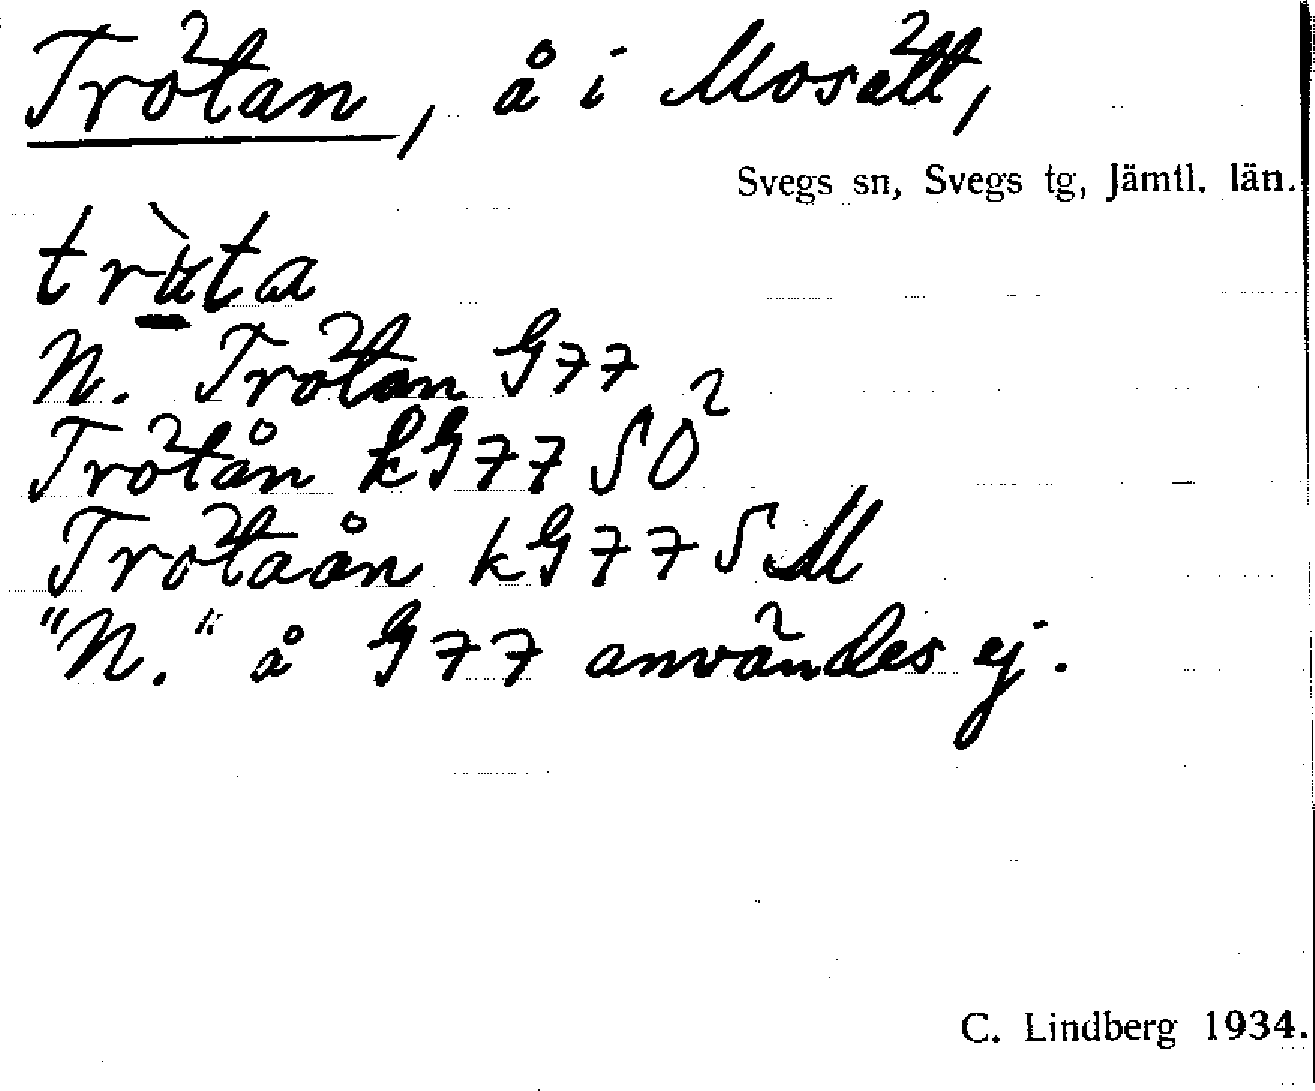 Trötan, å i Mosätt,
Svegs sn, Svegs tg, Jämtl. län.
trùta
N. Trötan G77
Trötån kG77 SO
Trötaån kG77 SM
"N." å G77 användes ej.
C. Lindberg 1934.